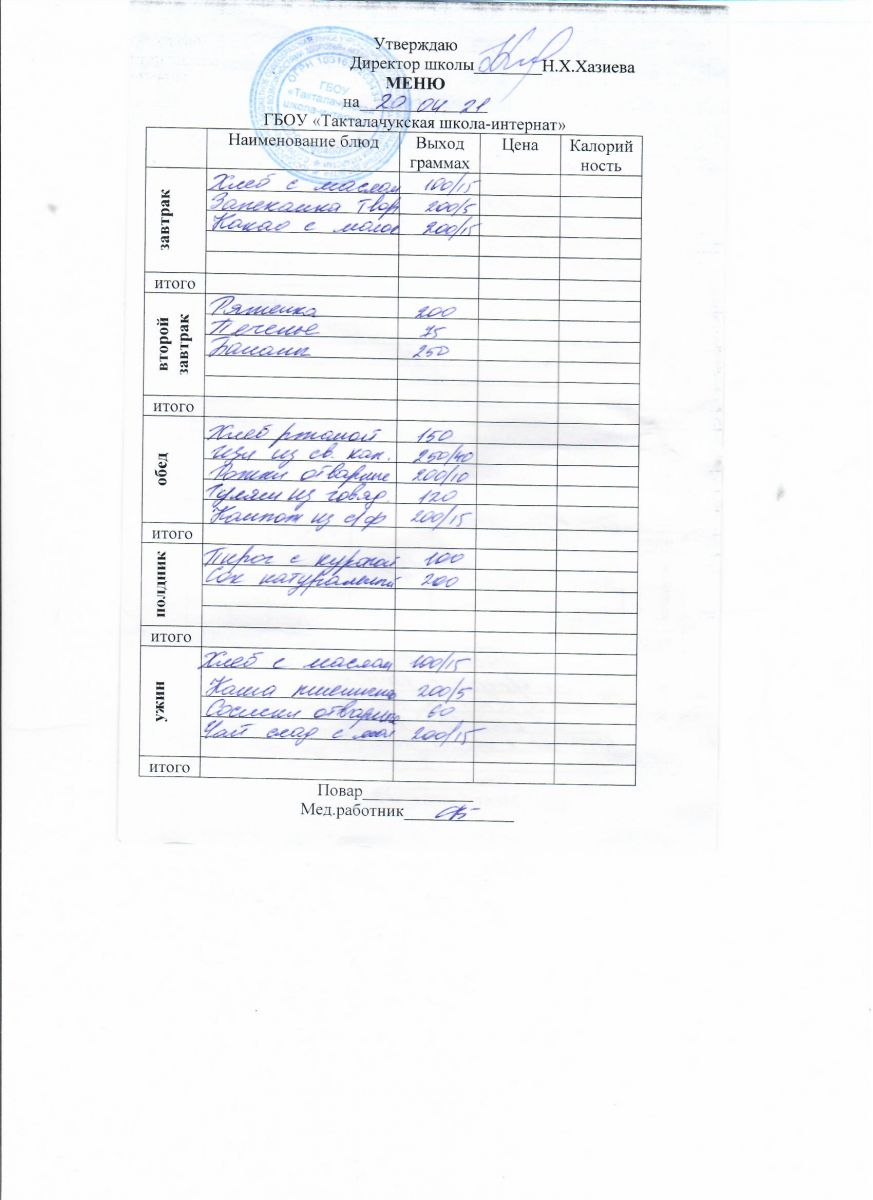 Утверждаю
Директор школы________Н.Х.Хазиева
МЕНЮ
на 20 04 21
ГБОУ «Такталачукская школа-интернат»
Наименование блюд Выход граммах Цена Калорий ность
завтрак
Хлеб с маслом 100/15
Запеканка твор 200/5
Какао с молок 200/15
итого
второй завтрак
Ряженка 200
Печенье 75
Бананы 250
итого
обед
Хлеб ржаной 150
Щи из св. кап. 250/40
Рожки отварные 200/10
Гуляш из говяд. 120
Компот из с/ф 200/15
итого
полдник
Пирог с курагой 100
Сок натуральный 200
итого
ужин
Хлеб с маслом 100/15
Каша пшенична 200/5
Сосиски отварные 60
Чай слад с мол 200/15
итого
Повар____________
Мед.работник____________